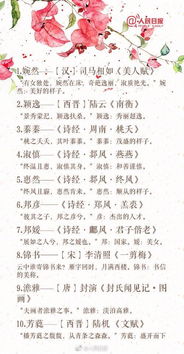 @人民日报
1.婉然——[汉]司马相如《美人赋》
"有女独处，婉然在床，奇葩逸丽，淑质艳光。"婉然：美好的样子。
2.颖逸——[西晋]陆云《南衡》
"景秀蒙汜，颖逸扶桑。"颖逸：秀丽超逸。
3.蓁蓁——《诗经·周南·桃夭》
"桃之夭夭，其叶蓁蓁。"蓁蓁：茂盛的样子。
4.淑慎——《诗经·邶风·燕燕》
"终温且惠，淑慎其身。"淑慎：和善谨慎。
5.惠然——《诗经·邶风·终风》
"终风且霾，惠然肯来。"惠然：顺从的样子。
6.邦彦——《诗经·郑风·羔裘》
"彼其之子，邦之彦兮。"邦彦：杰出的人才。
7.邦媛——《诗经·鄘风·君子偕老》
"展如之人兮，邦之媛也。"邦：国家，媛：美女。
8.锦书——[宋]李清照《一剪梅》
云中谁寄锦书来？雁字回时，月满西楼。锦书：书信的美称。
9.澹雅——[唐]封演《封氏闻见记·图画》
"夫画者澹雅之事。"澹雅：淡泊高雅。
10.芳蕤——[西晋]陆机《文赋》
"播芳蕤之馥馥，发青条之森森。"芳蕤：盛开而下